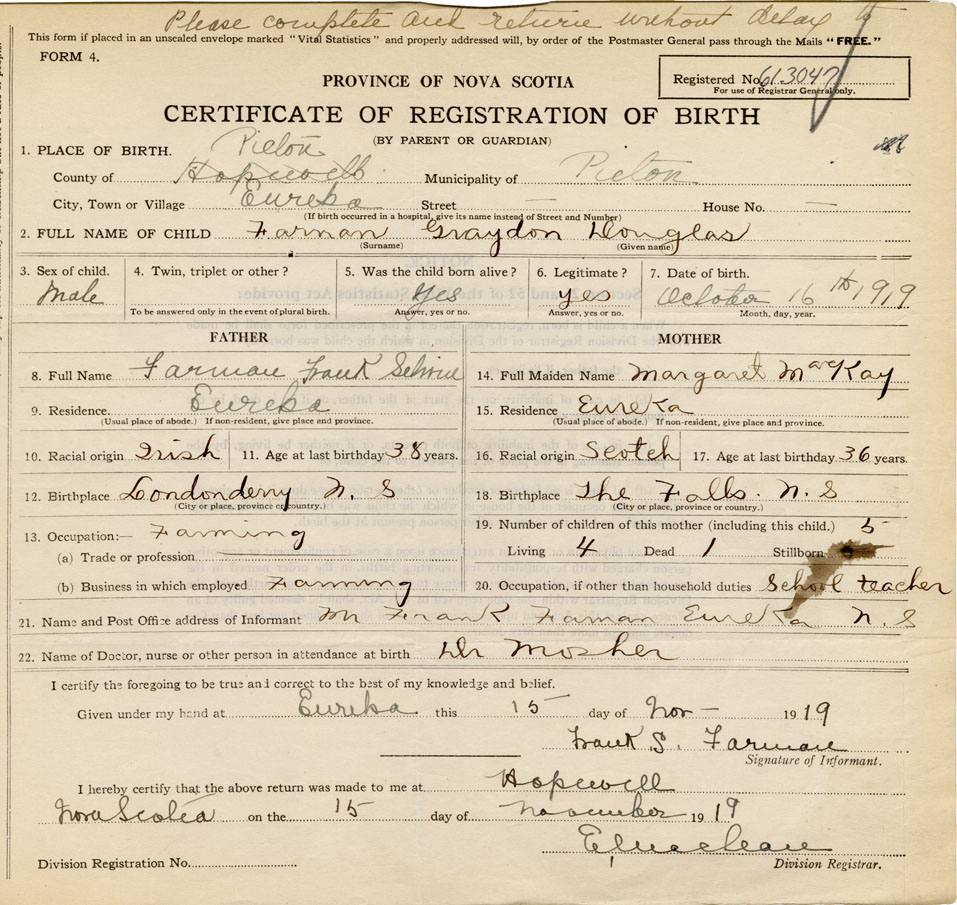 Please complete and return without delay
This form if placed in an unsealed envelope marked "Vital Statistics" and properly addressed will, by order of the Postmaster General pass through the Mails "FREE."
FORM 4.
Registered No. 613047
For use of Registrar General only.
PROVINCE OF NOVA SCOTIA
CERTIFICATE OF REGISTRATION OF BIRTH
(BY PARENT OR GUARDIAN)
1. PLACE OF BIRTH. Pictou
County of Hopewell Municipality of Pictou
City, Town or Village Eureka Street — House No. —
(If birth occurred in a hospital, give its name instead of Street and Number)
2. FULL NAME OF CHILD Farman Graydon Douglas
(Surname) (Given name)
3. Sex of child. 4. Twin, triplet or other? 5. Was the child born alive? 6. Legitimate? 7. Date of birth.
Male Yes yes October 16th 1919
To be answered only in the event of plural birth. Answer, yes or no. Answer, yes or no. Month, day, year.
FATHER MOTHER
8. Full Name Farman Frank 14. Full Maiden Name Margaret MacKay
9. Residence. Eureka 15. Residence Eureka
(Usual place of abode.) If non-resident, give place and province. (Usual place of abode.) If non-resident, give place and province.
10. Racial origin Irish 11. Age at last birthday 38 years. 16. Racial origin Scotch 17. Age at last birthday 36 years.
12. Birthplace Londonderry N. S 18. Birthplace The Falls. N. S
(City or place, province or country.) (City or place, province or country.)
13. Occupation:— Farming 19. Number of children of this mother (including this child.) 5
(a) Trade or profession Living 4 Dead 1 Stillborn
(b) Business in which employed Farming 20. Occupation, if other than household duties School teacher
21. Name and Post Office address of Informant Mr Frank Farman Eureka N. S
22. Name of Doctor, nurse or other person in attendance at birth Dr Mosher
I certify the foregoing to be true and correct to the best of my knowledge and belief.
Given under my hand at Eureka this 15 day of Nov — 1919
Frank S. Farman
Signature of Informant.
I hereby certify that the above return was made to me at Hopewell
Nova Scotia on the 15 day of November 1919
Division Registration No.
Division Registrar.